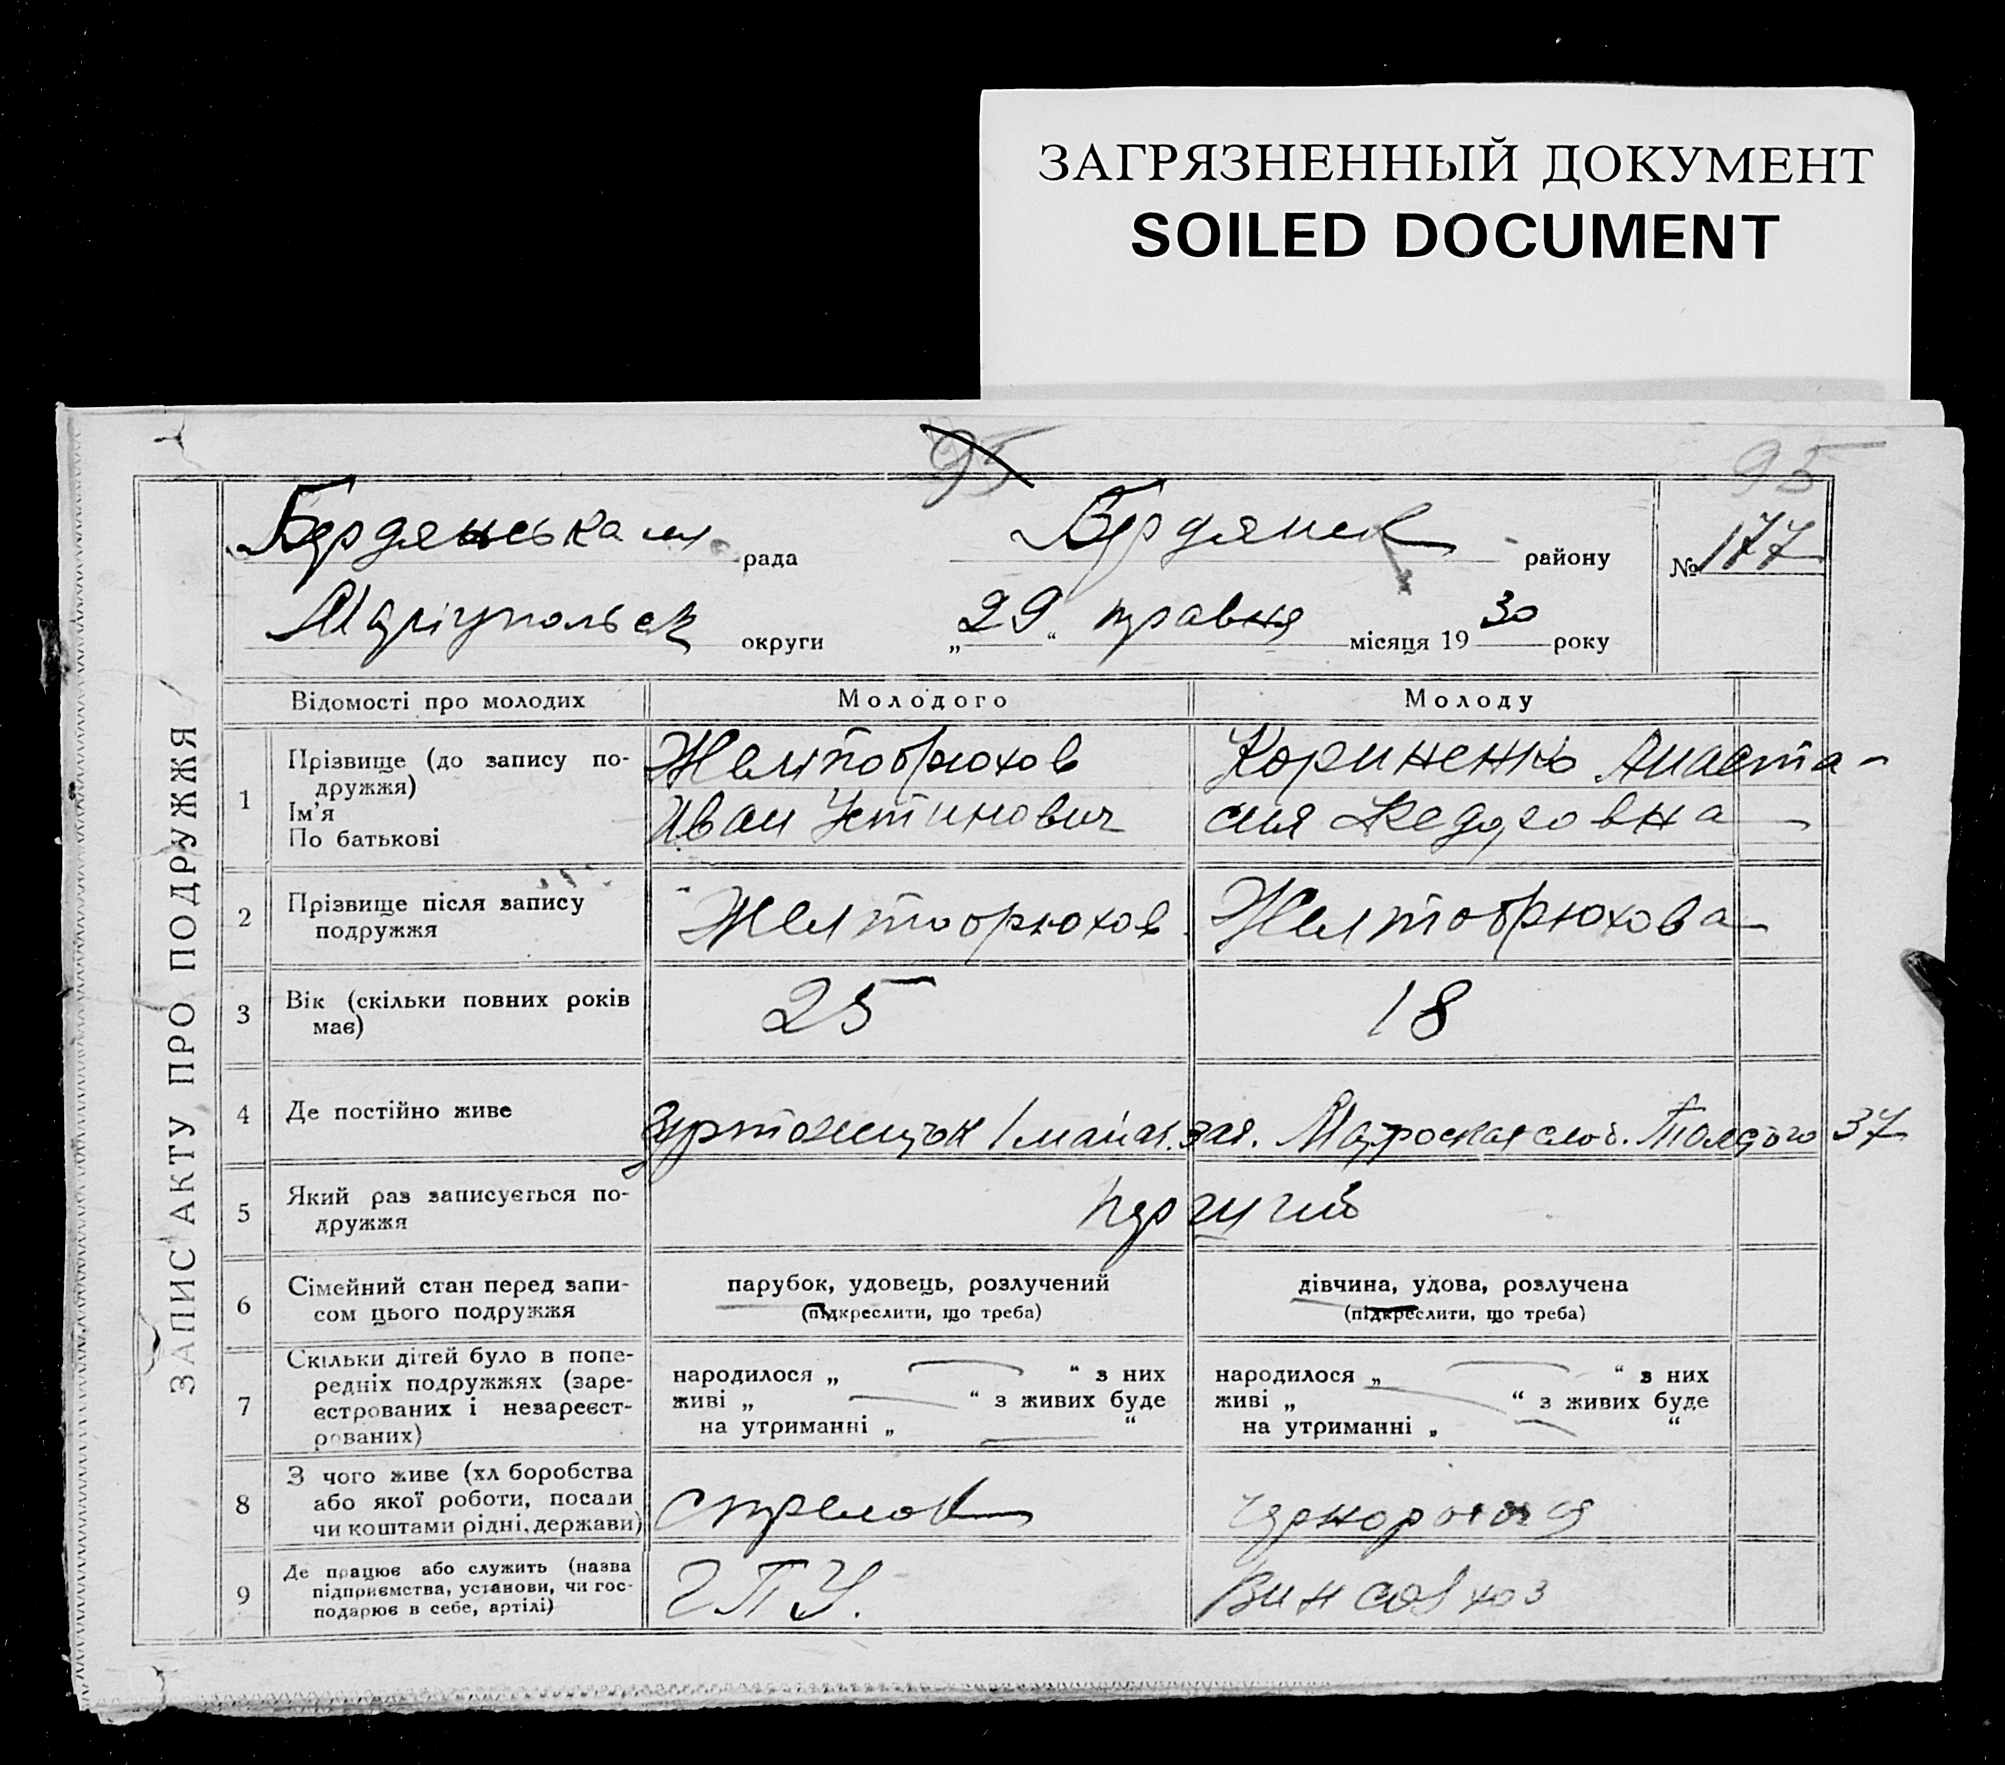 ЗАГРЯЗНЕННЫЙ ДОКУМЕНТ
SOILED DOCUMENT
95
95
Бердянська рада
Бердянськ району
№ 177
Маріупольськ округи
„29“ травня місяця 1930 року
ЗАПИС АКТУ ПРО ПОДРУЖЖЯ
Відомості про молодих
Молодого
Молоду
1
Прізвище (до запису по-
дружжя)
Ім'я
По батькові
Желтобрюхов
Иван Устинович
Кориненко Анаста-
сия Федоровна
2
Прізвище після запису
подружжя
Желтобрюхов
Желтобрюхова
3
Вік (скільки повних років
має)
25
18
4
Де постійно живе
слоб. Толстого 37
5
Який раз записується по-
дружжя
6
Сімейний стан перед запи-
сом цього подружжя
парубок, удовець, розлучений
(підкреслити, що треба)
дівчина, удова, розлучена
(підкреслити, що треба)
7
Скільки дітей було в попе-
редніх подружжях (заре-
єстрованих і незареєст-
рованих)
народилося „ “ з них
живі „ “ з живих буде
на утриманні „ “
народилося „ “ з них
живі „ “ з живих буде
на утриманні „ “
8
З чого живе (хл боробства
або якої роботи, посади
чи коштами рідні, держави)
стрелок
чернорабочая
9
Де працює або служить (назва
підприємства, установи, чи гос-
подарює в себе, артілі)
ГПУ.
Винсовхоз